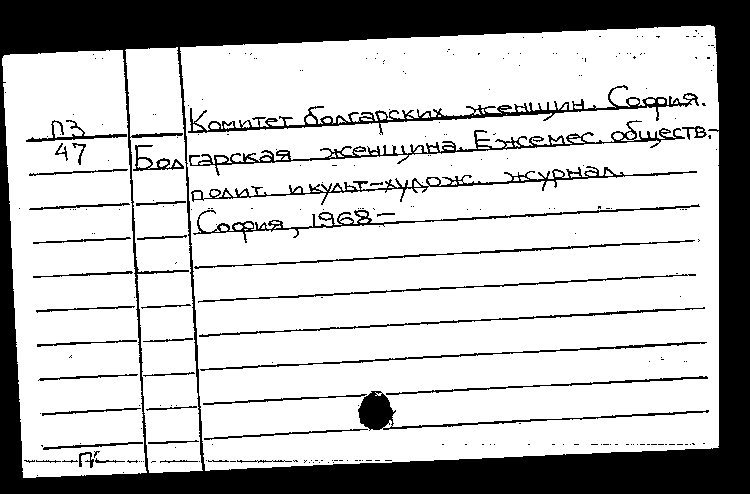 П3 Комитет болгарских женщин. София.
47 Болгарская женщина. Ежемес. обществ.-
полит. и культ-худож. журнал.
София, 1968-